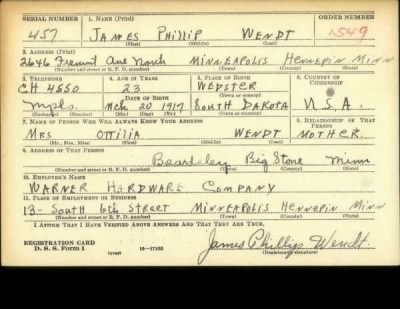 SERIAL NUMBER 1. NAME (Print) ORDER NUMBER
457 JAMES PHILLIP WENDT 1549
(First) (Middle) (Last)
2. ADDRESS (Print)
2646 Fremont Ave North MINNEAPOLIS HENNEPIN MINN
(Number and street or R. F. D. number) (Town) (County) (State)
3. TELEPHONE 4. AGE IN YEARS 5. PLACE OF BIRTH 6. COUNTRY OF CITIZENSHIP
CH 4550 23 WEBSTER
DATE OF BIRTH (Town or county)
Mpls. Mch 20 1917 SOUTH DAKOTA U.S.A.
(Exchange) (Number) (Mo.) (Day) (Yr.) (State or country)
7. NAME OF PERSON WHO WILL ALWAYS KNOW YOUR ADDRESS 8. RELATIONSHIP OF THAT PERSON
MRS OTTILIA WENDT MOTHER
(Mr., Mrs., Miss) (First) (Middle) (Last)
9. ADDRESS OF THAT PERSON
Beardsley Big Stone Minn
(Number and street or R. F. D. number) (Town) (County) (State)
10. EMPLOYER'S NAME
WARNER HARDWARE COMPANY
11. PLACE OF EMPLOYMENT OR BUSINESS
13- SOUTH 6th STREET MINNEAPOLIS HENNEPIN MINN
(Number and street or R. F. D. number) (Town) (County) (State)
I AFFIRM THAT I HAVE VERIFIED ABOVE ANSWERS AND THAT THEY ARE TRUE.
REGISTRATION CARD
D. S. S. Form 1 (over) 16-17105 James Phillip Wendt.
(Registrant's signature)